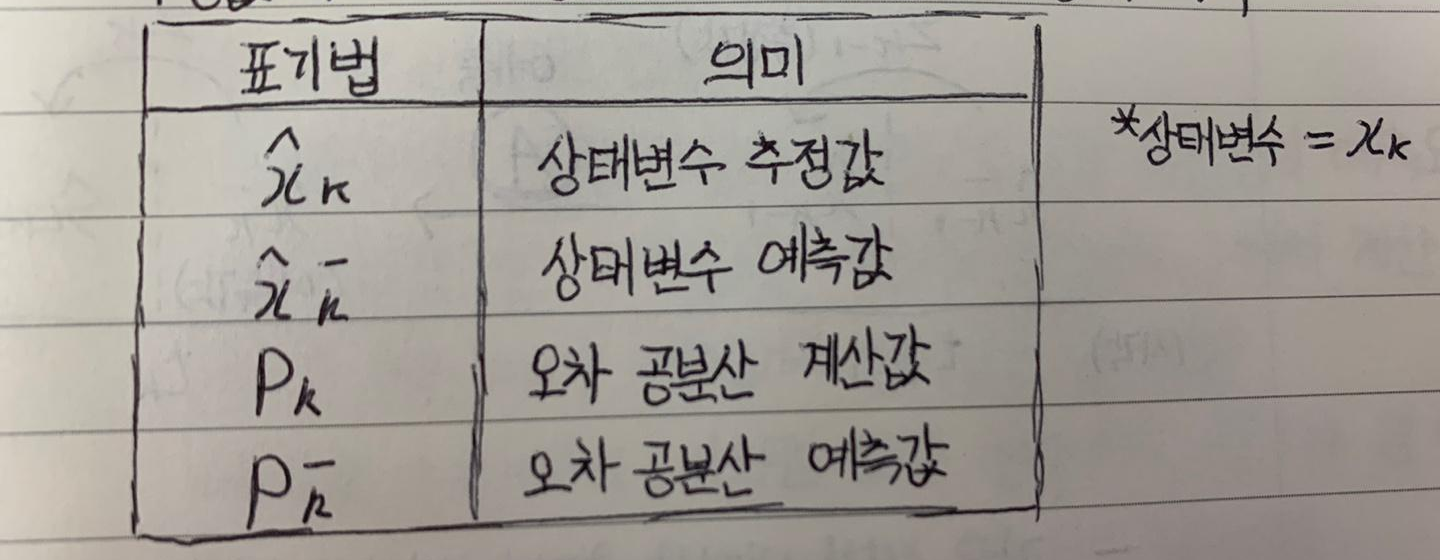 표기법 의미
x̂ₖ 상태변수 추정값 *상태변수 = xₖ
x̂ₖ⁻ 상태변수 예측값
Pₖ 오차 공분산 계산값
Pₖ⁻ 오차 공분산 예측값